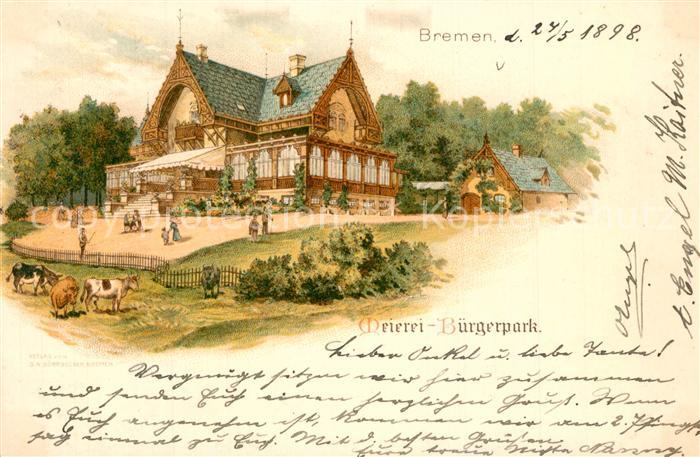 Bremen, d. 27/5 1898.
Meierei-Bürgerpark.
VERLAG VON
BREMEN
Lieber Onkel u. liebe Tante!
Vergnügt sitzen wir hier zusammen
und senden Euch einen herzlichen Gruß. Wenn
es Euch angenehm ist, kommen wir am 2. Pfingst
tag einmal zu Euch. Mit d. besten Grüßen
Eure treue Nichte
Engel M.
copyright protection Kopierschutz